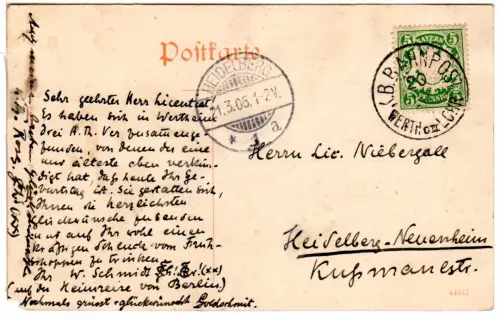 Postkarte.
BAYERN
5 5
PFENNIG
K.B.BAHNPOST
20
WERTH
LOHR
HEIDELBERG
11.3.06.1-2V.
* 1 a
Sehr geehrter Herr Licentiat,
Es haben sich in Wertheim
drei A.T.Ver zusammenge-
funden, von denen der eine
uns älteste eben verkün-
digt hat, daß heute Ihr Ge-
burtstag ist. Sie gestatten sich,
Ihnen die herzlichsten
Glückwünsche zu senden
und auf Ihr Wohl einen
kräftigen Schluck vom Früh-
schoppen zu trinken.
Ihr W. Schmidt (xx)
(auf der Heimreise von Berlin)
Nochmals grüsst + glückwünscht Goldschmit.
Herrn Lic. Niebergall
Heidelberg-Neuenheim
Kußmaulstr.